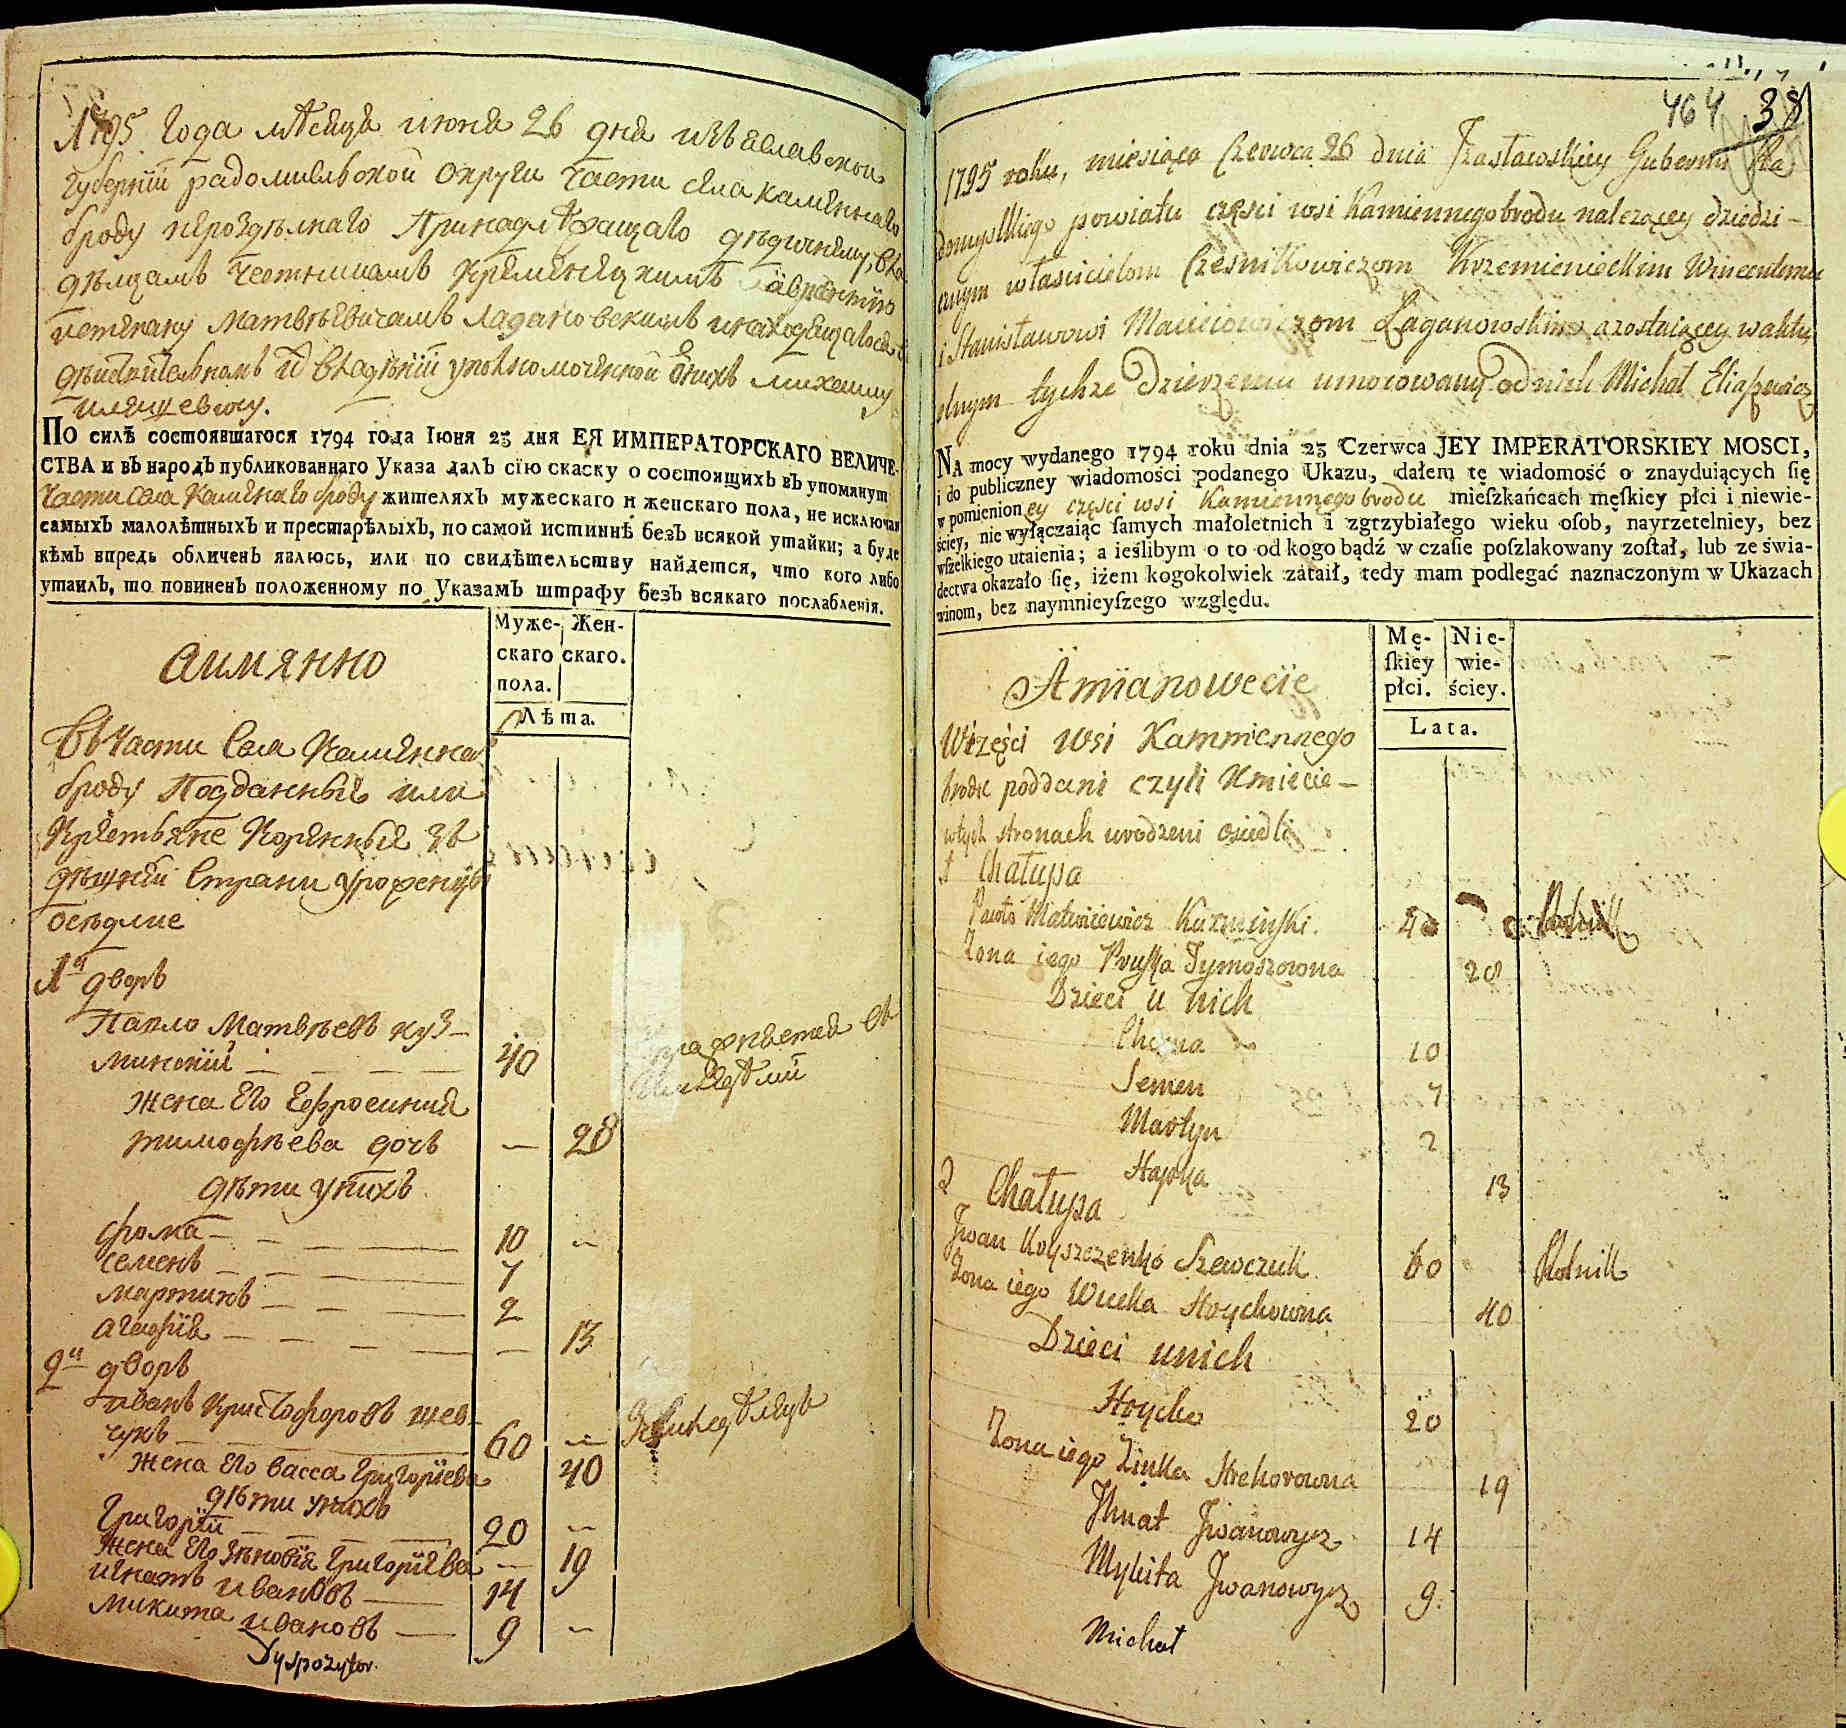 1795 Года мѣсяца июня 26 дня изъяславской
губернїи радомисльской округи части села каменнаго
броду нероздѣлнаго принадлѣжащаго дѣдичнымъ вла
дѣлцамъ честникамъ кремѣнецкимъ
матвѣевичамъ и находящагося
дѣйствительномъ владѣнїи уполномоченной ѿ нихъ михаилу
илляшевичу.
По силѣ состоявшагося 1794 года Іюня 23 дня ЕЯ ИМПЕРАТОРСКАГО ВЕЛИЧЕ-
СТВА и въ народъ публикованнаго Указа далъ сїю скаску о состоящихъ въ упомянут
части села Каменаго броду жителяхъ мужескаго и женскаго пола, не исключая
самыхъ малолѣтныхъ и престарѣлыхъ, по самой истиннѣ безъ всякой утайки; а буде
кѣмъ впредь обличенъ явлюсь, или по свидѣтельству найдется, что кого либо
утаилъ, то повиненъ положенному по Указамъ штрафу безъ всякаго послабленїя.
аимянно
Муже- Жен-
скаго скаго.
пола.
Лѣта.
Въ части села Каменна
броду Подданные или
Крестьяне Коренные въ
здѣшнїй страни уроженцы
оседлие
1й дворъ
Павло Матвѣевъ куз-
минскїй 40
жена его Ефросиния
тимофѣева дочъ — 28
дѣти унихъ
фома — 10 —
семенъ — 7
мартинъ — 2
агафїя — 13
2й дворъ
иванъ Христофоровъ шев-
чукъ 60 — Землѣдѣлецъ
жена его васса григорїева 40
дѣти унихъ
григорїй 20 —
жена его зѣновїя григорїева — 19
игнатъ ивановъ — 14
микита ивановъ — 9 —
Dyspozytor.
464 38
1795 roku, miesiąca Czerwca 26 dnia Izasławskiey Gubernii Ra
domyslkiego powiatu częsci wsi Kamiennegobrodu należącey dziedzi-
cznym właścicielom Cześnikowiczom Krzemienieckim Wincentemu
i Stanisławowi Macieiowiczom Łaganowskim a zostaiącey w aktu
alnym tychże Dzierżeniu umocowany od nich Michał Eliaszewicz
NA mocy wydanego 1794 roku dnia 23 Czerwca JEY IMPERATORSKIEY MOSCI,
i do publiczney wiadomości podanego Ukazu, dałem tę wiadomość o znayduiących ſię
w pomienioney częsci wsi Kamiennęgobrodu mieſzkańcach męſkiey płci i niewie-
ściey, nie wyłączaiąc ſamych małoletnich i zgrzybiałego wieku oſob, nayrzetelniey, bez
wſzelkiego utaienia; a ieślibym o to od kogo bądź w czaſie poſzlakowany zoſtał, lub ze świa-
dectwa okazało ſię, iżem kogokolwiek zataił, tedy mam podlegać naznaczonym w Ukazach
winom, bez naymnieyſzego względu.
Amianowecie
Mę- Nie-
ſkiey wie-
płci. ściey.
Lata.
W częsci wsi Kammiennego
brodu poddani czyli Kmiecie-
wtych stronach urodzeni osiedli
1 Chałupa
Pawło Matwiiewicz Kuzminski. 40
Żona iego Pruska Tymoszowna 28
Dzieci u nich
Choma 10
Semen 7
Martyn 2
Hapka 13
2 Chałupa
Iwan Kryszczenko Szewczuk 60 Rolnik
Żona iego Wucka Hrychowna 40
Dzieci unich
Hrycko 20
Żona iego Zinka Hrehorowna 19
Ihnat Iwanowycz 14
Mykita Iwanowycz 9.
Michał